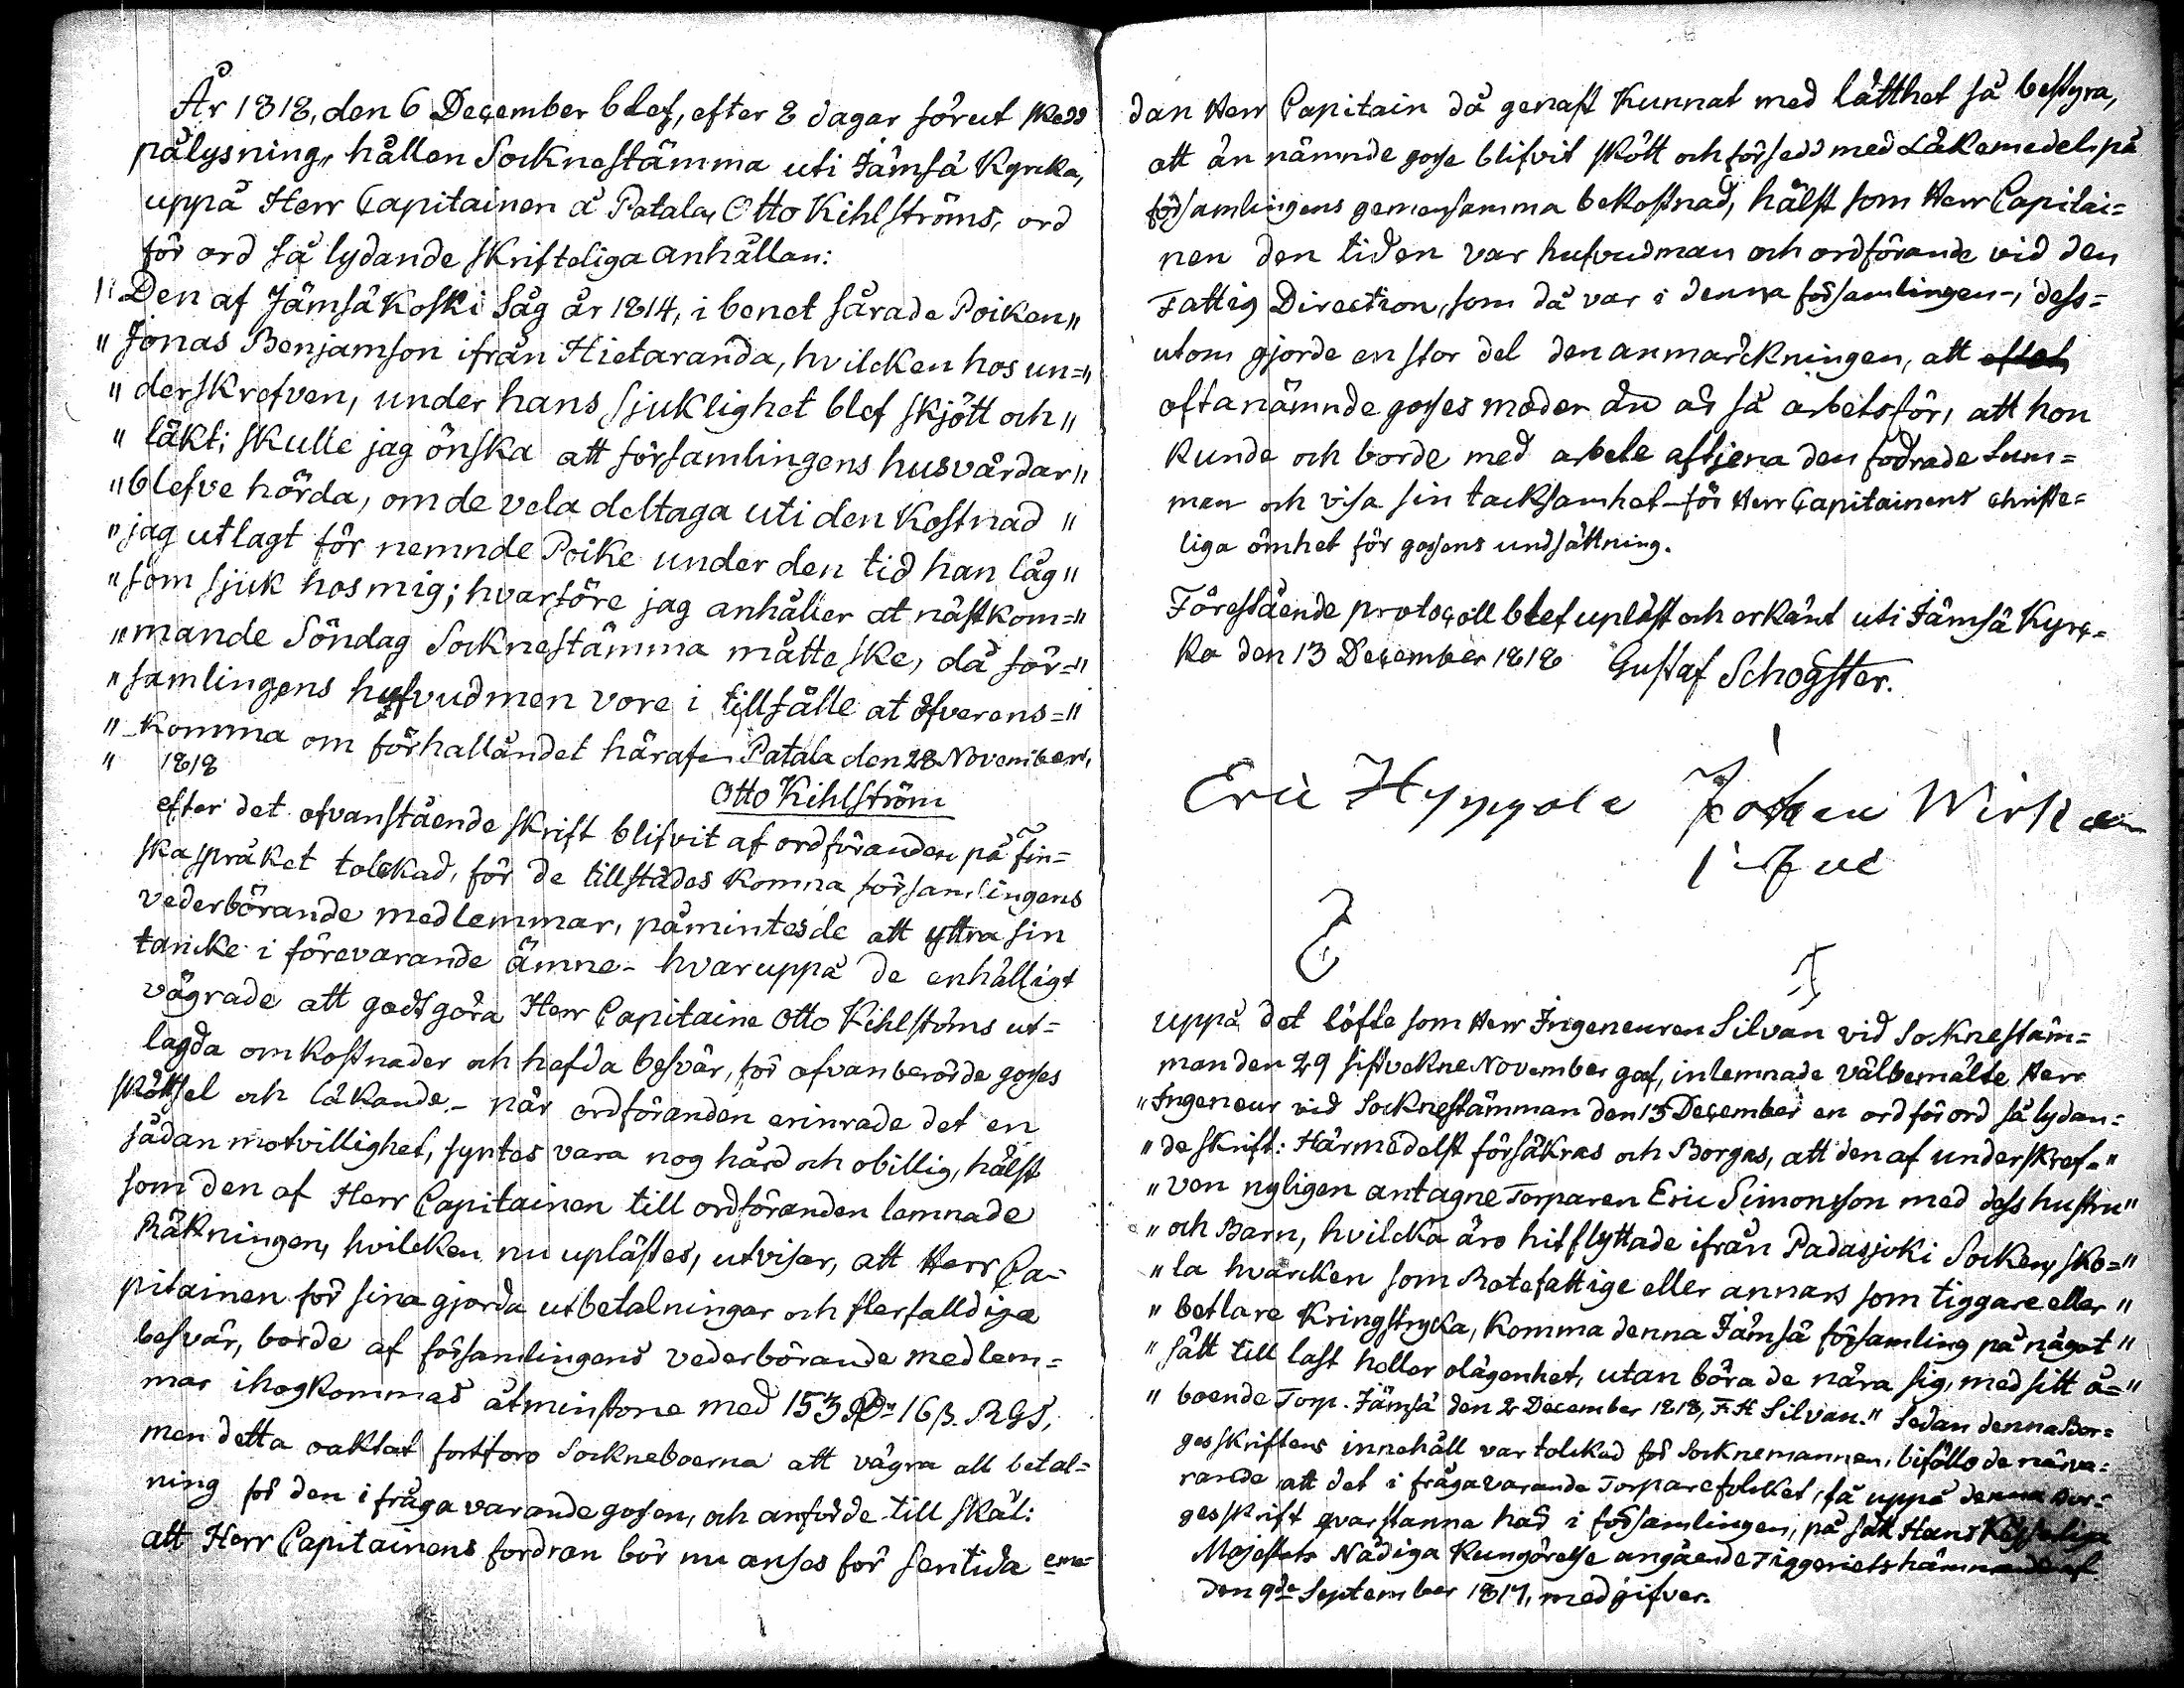 År 1818, den 6 December blef, efter 8 dagar förut skedd
pålysning,, hållen Socknestämma uti Jämsä Kyrcka,
uppå Herr Capitainen å Patala, Otto Kihlströms, ord
för ord så lydande skrifteliga anhållan:
"Den af Jämsä Koski Såg år 1814, i benet sårade Poiken"
"Jonas Benjamson ifrån Hietaranda, hvilcken hos un="
"derskrefven, under hans sjuklighet blef skjött och"
"läkt; skulle jag önska att församlingens husvärdar"
"blefve hörda, om de vela deltaga uti den Kostnad"
"jag utlagt för nemnde Poike under den tid han låg"
"som sjuk hos mig; hvarföre jag anhåller at nästkom="
"mande Söndag Socknestämma måtte ske, då för="
"samlingens hufvudmen vore i tillfälle at öfverens="
"komma om förhallandet häraf. Patala den 28 November,
" 1818
Otto Kihlström
efter det ofvanstående skrift blifvit af ordföranden på fin=
ska språket tolckad, för de tillstädes komna församlingens
vederbörande medlemmar, påmintes de att yttra sin
tancke i förevarande ämne - hvaruppå de enhälligt
vägrade att godtgöra Herr Capitaine Otto Kihlströms ut=
lagda omkostnader och hafda besvär, för ofvanberörde gosses
skötsel och läkande. - när ordföranden erinrade det en
sådan motvillighet, syntes vara nog hård och obillig, hälst
som den af Herr Capitainen till ordföranden lemnade
Räkningen, hvilcken nu uplästes, utviser, att Herr Ca=
pitainen för sina gjorda utbetalningar och flerfalldiga
besvär, borde af församlingens vederbörande medlem=
mar ihogkommas åtminstone med 153 Rd. 16 ß. RGS,
men detta oaktat fortforo Sockneboerna att vägra all betal=
ning för den ifrågavarande gossen, och anförde till skäl:
att Herr Capitainens fordran bör nu anses för sentida eme=
dan Herr Capitain då genast kunnat med lätthet så bestyra,
att än nämnde gosse blifvit skött och försedd med Läkemedel på
församlingens gemensamma bekostnad, hälst som Herr Capitai=
nen den tiden var hufvudman och ordförande vid den
Fattig Direction, som då var i denna församlingen -, dess=
utom gjorde en stor del den anmärckningen, att
oftanämnde gosses moder än är så arbetsför, att hon
kunde och borde med arbete aftjena den fodrade Sum=
man och visa sin tacksamhet för Herr Capitainens christe=
liga ömhet för gossens undsättning.
Förestående protocoll blef upläst och erkänt uti Jämsä Kyrc=
ka den 13 December 1818 Gustaf Schogster.
Eric Hyppole Johan Wirken
uppå det löfte som Herr Ingeneuren Silvan vid Socknestäm=
man den 29 sistvekne November gaf, inlemnade välbemälte Herr
"Ingeneur vid Socknestämman den 13 December en ord för ord så lydan=
"de skrift: Härmedelst försäkras och Borgas, att den af underskref="
"ven nyligen antagne Torparen Eric Simonsson med dess hustru"
"och Barn, hvilcka äro hitflyttade ifrån Padasjoki Socken, sko="
"la hvarcken som Rotefattige eller annars som tiggare eller"
"betlare kringstryka, komma denna Jämsä församling på något"
"sätt till last heller olägenhet, utan böra de nära sig, med sitt å="
"boende Torp. Jämsä den 2 December 1818, F. H Silvan." Sedan denna Bor=
gesskriftens innehåll var tolckad för Socknemännen, biföllo de närva=
rande att det i frågavarande Torparefolcket, få uppå denna Bor=
gesskrift qvarstanna här i församlingen, på sätt Hans Kejserliga
Majestets Nådiga Kungörelse angående Tiggeriets hämmande af
den 9de September 1817, medgifver.